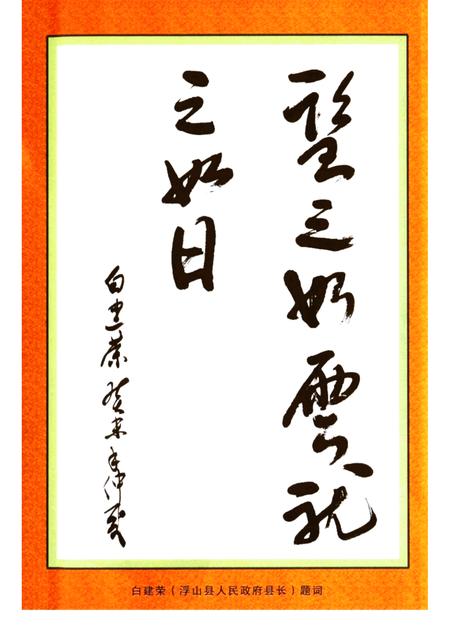 望之如雲就
之如日
白建荣 癸未年仲夏
白建荣(浮山县人民政府县长)题词